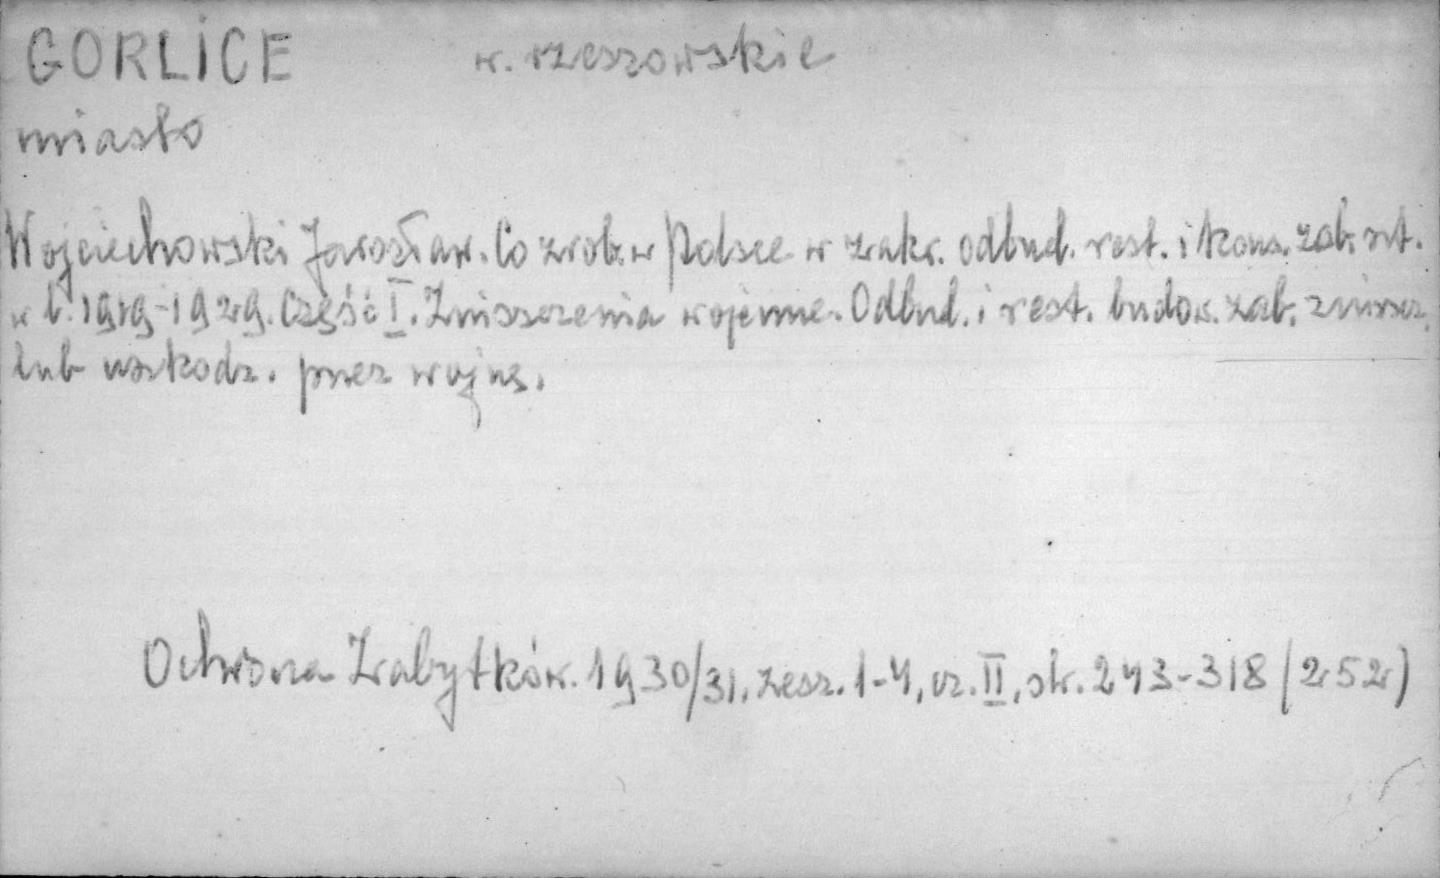 GORLICE w. rzeszowskie
miasto
Wojciechowski Jarosław. Co zrob. w Polsce w zakr. odbud. rest. i kons. zab. szt.
w l. 1919-1929. Część I. Zniszczenia wojenne. Odbud. i rest. budow. zab. zniszcz.
lub uszkodz. przez wojnę.
Ochrona Zabytków. 1930/31, zesz. 1-4, cz. II, str. 243-318 (252)